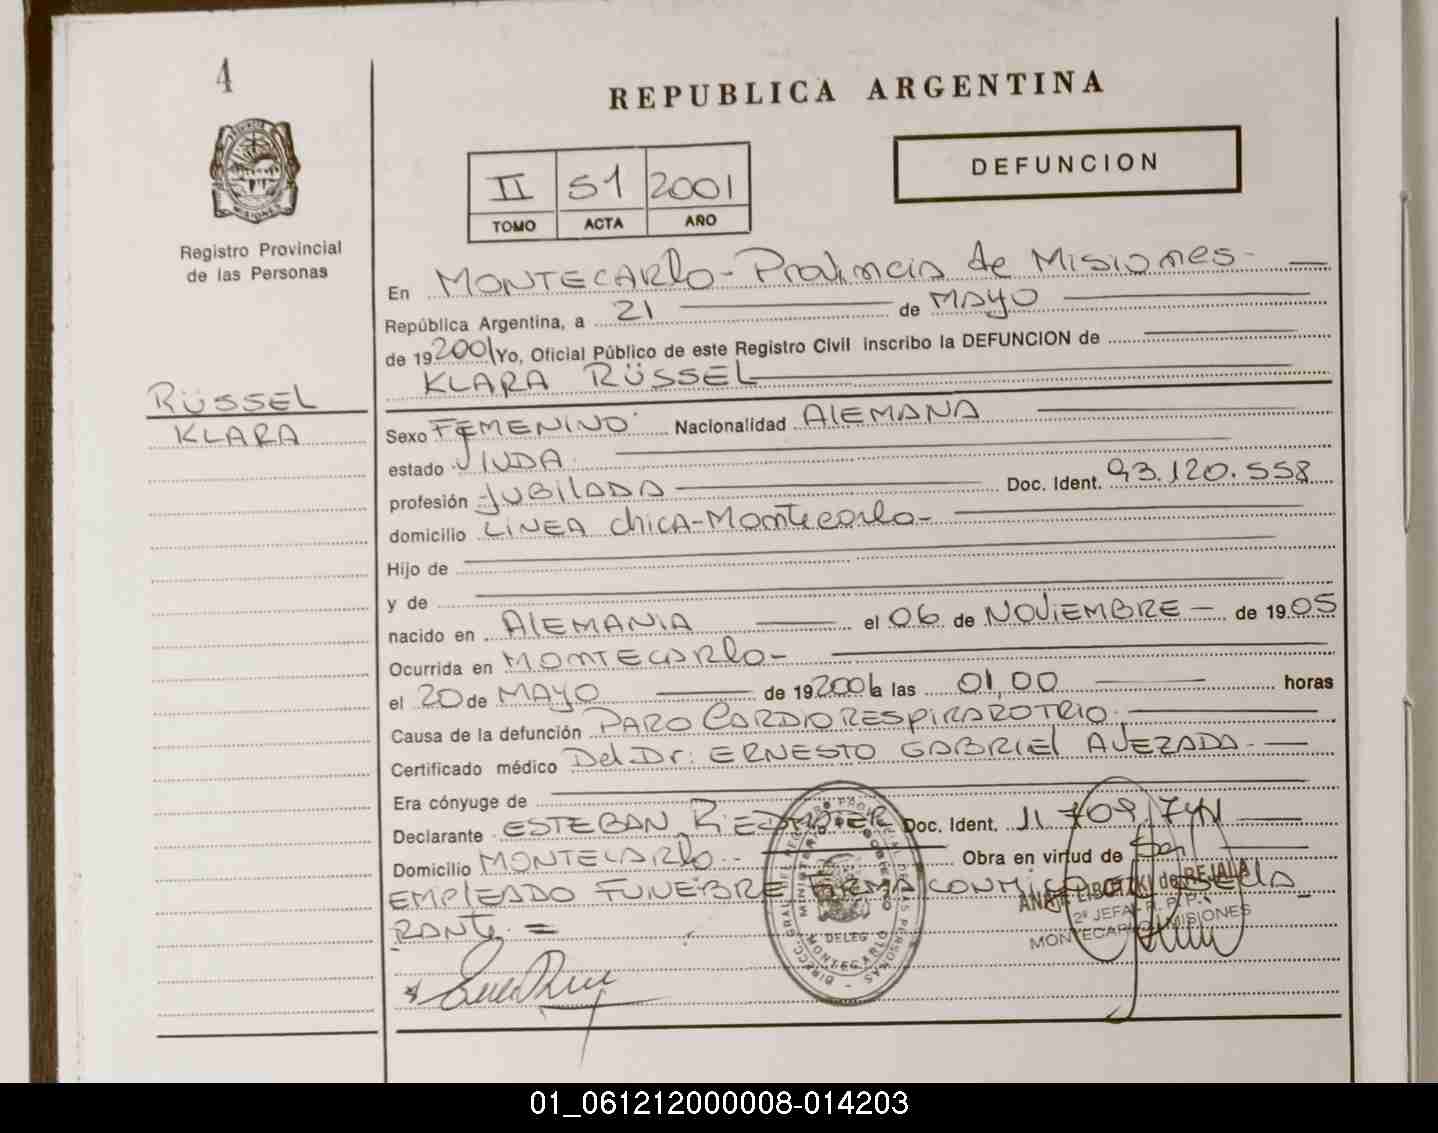 4
REPUBLICA ARGENTINA
DEFUNCION
II 51 2001
TOMO ACTA AÑO
Registro Provincial
de las Personas
En MONTECARLO - Provincia de Misiones -
República Argentina, a 21 de MAYO
de 19 2001 Yo, Oficial Público de este Registro Civil inscribo la DEFUNCION de
KLARA RÜSSEL
RÜSSEL
KLARA
Sexo FEMENINO Nacionalidad ALEMANA
estado VIUDA
profesión JUBILADA Doc. Ident. 93.120.558
domicilio LINEA chica - Montecarlo -
Hijo de
y de
nacido en ALEMANIA el 06 de NOVIEMBRE - de 19 05
Ocurrida en MONTECARLO -
el 20 de MAYO de 19 2001 a las 01,00 horas
Causa de la defunción PARO CARDIORESPIRAROTRIO.
Certificado médico Del Dr: ERNESTO GABRIEL AVEZADA -
Era cónyuge de
Declarante ESTEBAN Doc. Ident. 11 709.741
Domicilio MONTECARLO - Obra en virtud de Ser
EMPLEADO FUNEBRE FIRMA CONMIGO
RANTE. =
MINISTERIO DE GOBIERNO
DELEG.
MONTECARLO
de REJALA
2ª JEFA R. P. P.
MONTECARLO MISIONES
01_061212000008-014203